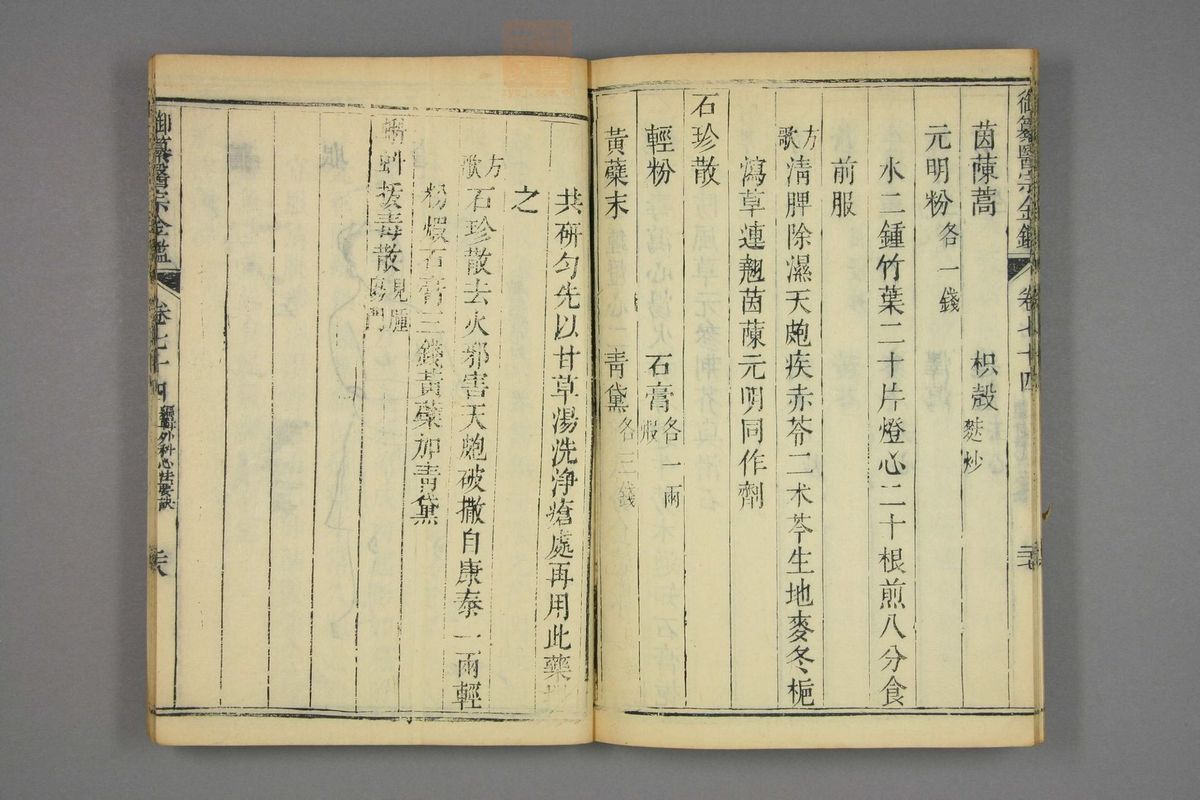 御纂醫宗金鑑 卷七十四
茵蔯蒿 枳殼麩炒
元明粉各一錢
水二鍾竹葉二十片燈心二十根煎八分食
前服
方歌 清脾除濕天皰疾赤苓二术芩生地麥冬梔
瀉草連翹茵蔯元明同作劑
石珍散
輕粉 石膏煅各一兩
黃蘗末 青黛各三錢
共研勻先以甘草湯洗淨瘡處再用此藥
之
方歌 石珍散去火邪害天皰破撒自康泰一兩輕
粉煅石膏三錢黃蘗加青黛
蚪拔毒散見腫瘍門
御纂醫宗金鑑 卷七十四 編輯外科心法要訣 二十八